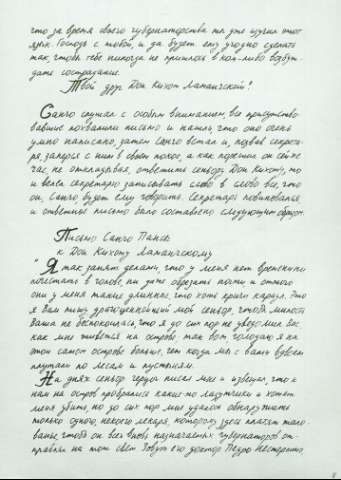 что за время своего губернаторства ты уже изучил этот
язык. Господь с тобой, и да будет ему угодно сделать
так, чтобы тебе никогда не пришлось в ком-либо возбуж-
дать сострадание.
Твой друг Дон Кихот Ламанчский."
Санчо слушал с особым вниманием, все присутство-
вавшие похвалили письмо и нашли, что оно очень
умно написано, затем Санчо встал и, позвав секрета-
ря, заперся с ним в своем покое, а как порешил он сейчас
час не откладывая, ответить сеньору Дон Кихоту, то
и велел секретарю записывать слово в слово все, что
он, Санчо, будет ему говорить. Секретарь повиновался
и ответное письмо было составлено следующим образом.
Письмо Санчо Пансы
к Дон Кихоту Ламанчскому
"Я так занят делами, что у меня нет времени
почесать в голове, ни даже обрезать ногти и оттого
они у меня такие длинные, что хоть кричи караул. Это
я Вам пишу, драгоценнейший мой сеньор, чтобы милость
Ваша не беспокоилась, что я до сих пор не уведомил Вас,
как мне живется на острове, так вот голодаю я на
этом самом острове больше, чем когда мы с вами вдвоем
плутали по лесам и пустыням.
На днях сеньор герцог писал мне и известил, что к
нам на остров пробрались какие-то лазутчики и хотят
меня убить, но до сих пор мне удалось обнаружить
только одного, некоего лекаря, которому здесь платят жало-
ванье, чтобы он всех вновь назначаемых губернаторов от-
правлял на тот свет. Зовут его доктор Педро Нестерпимо